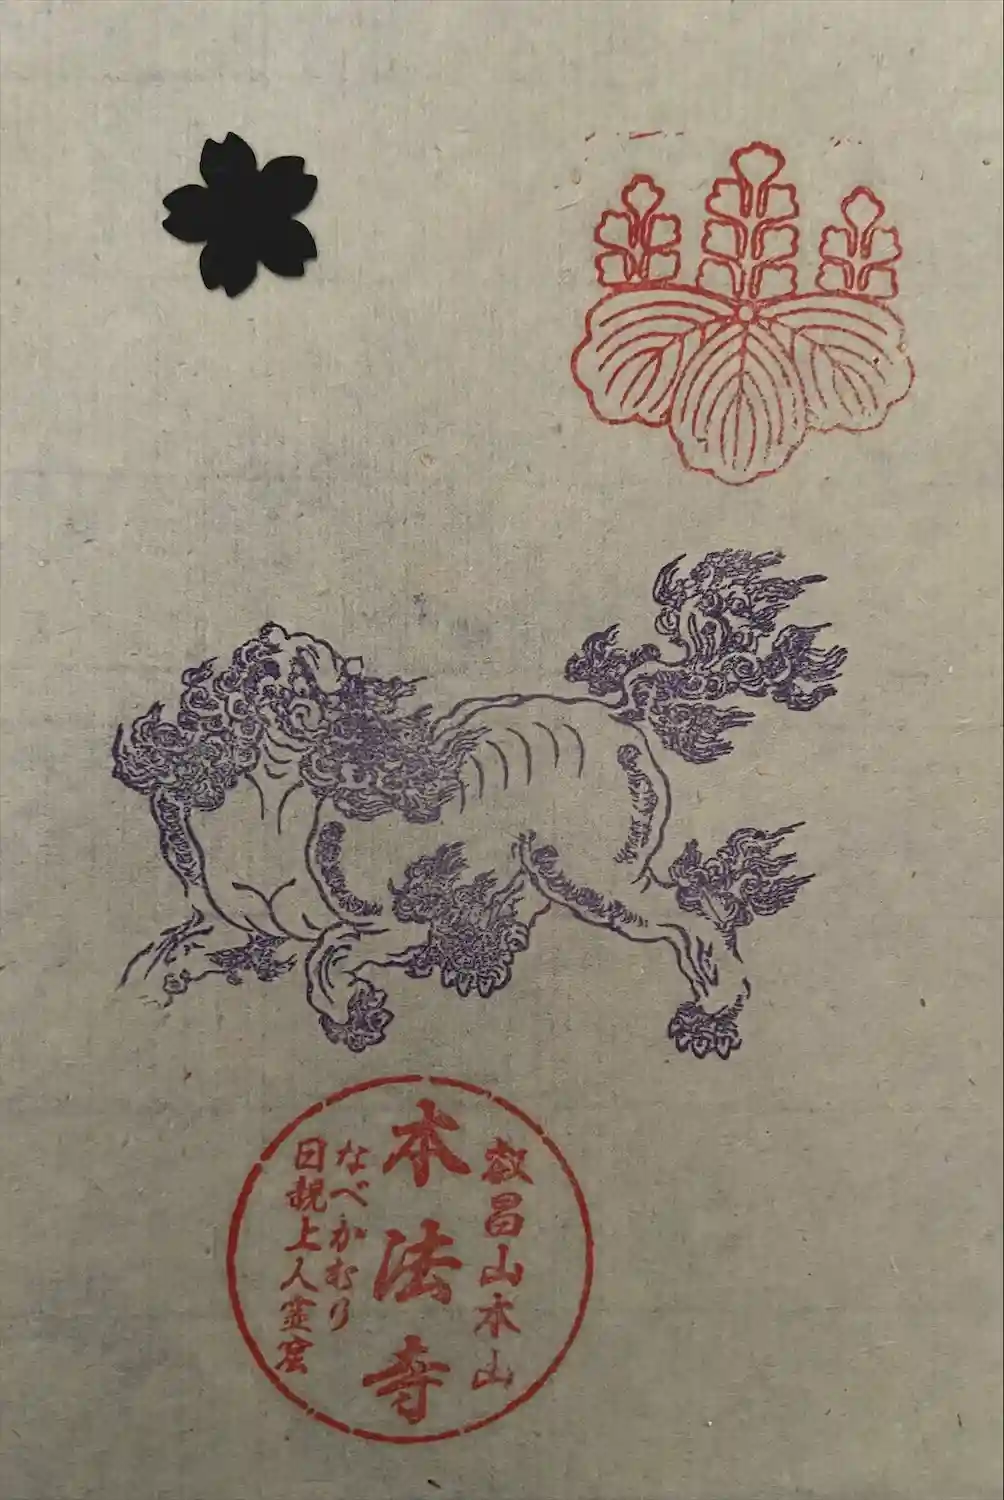 叡昌山本山
本法寺
なべかむり
日親上人霊窟